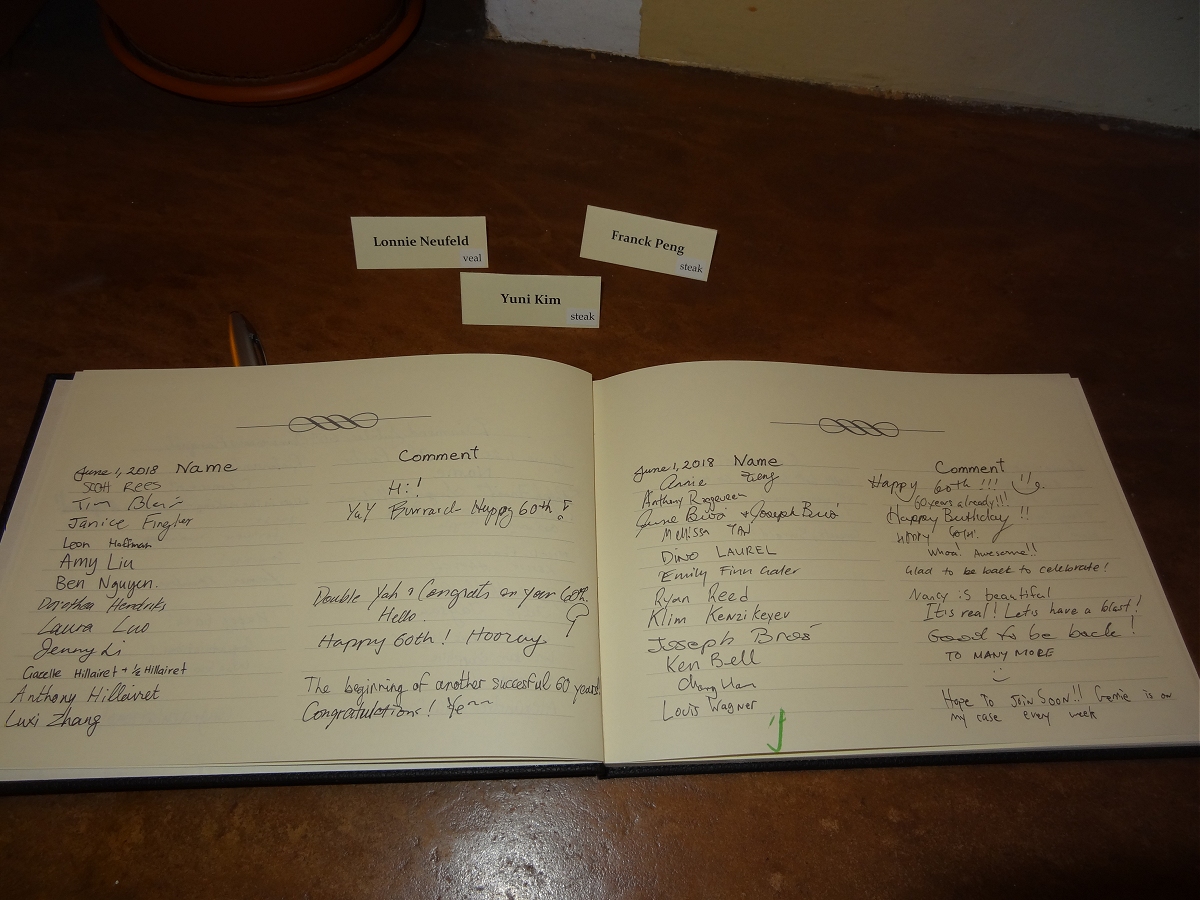 Lonnie Neufeld
veal
Franck Peng
steak
Yuni Kim
steak
June 1, 2018 Name Comment
Scott Rees Hi!
Tim
Janice Fingler YaY Burrard Happy 60th!
Leon Hoffman
Amy Liu
Ben Nguyen.
Dorothea Hendriks Double Yah & Congrats on your 60th.
Laura Luo Hello.
Jenny Li Happy 60th! Hooray
Gacelle Hillairet + ½ Hillairet
Anthony Hillairet The beginning of another succesful 60 years!
Luxi Zhang Congratulations! Ye
June 1, 2018 Name Comment
Annie Happy 60th!!!
Anthony Roggeveen 60 years already!!!
June Bros + Joseph Bros Happy Birthday!!
Mellissa TAN HAPPY 60TH!
DINO LAUREL Whoa! Awesome!!
Emily Finn Gater Glad to be back to celebrate!
Ryan Reed Nancy is beautiful
Klim Kenzikeyev It is real! Let's have a blast!
Joseph Bros Good to be back!
Ken Bell TO MANY MORE
Chang Han
Louis Wagner Hope to Join Soon!! Genie is on
my case every week